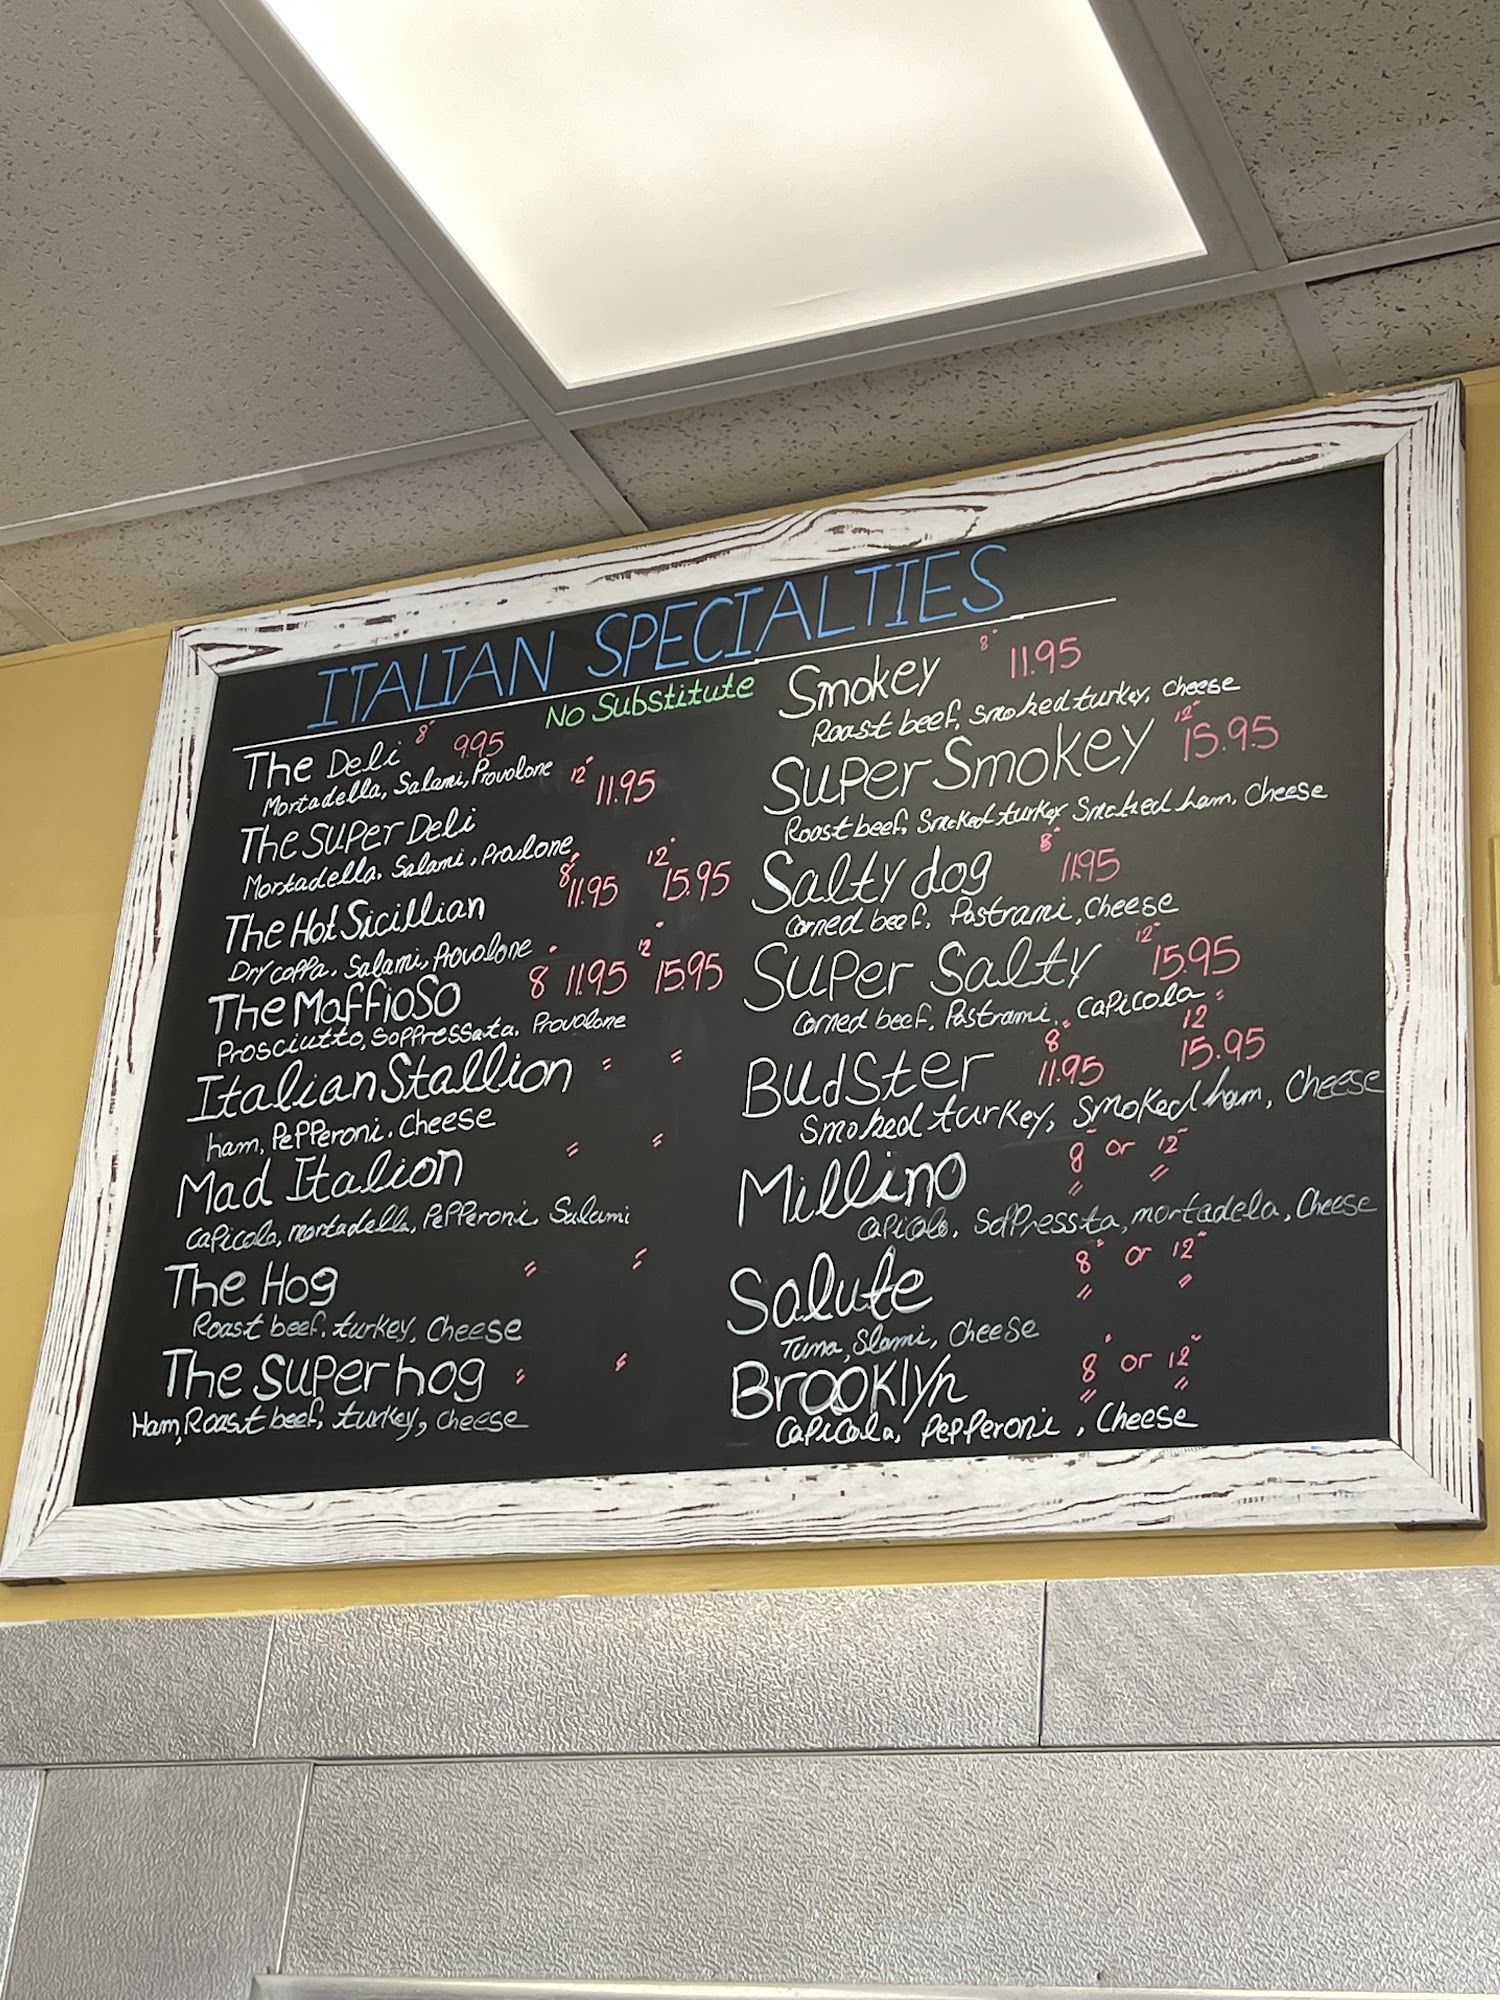 ITALIAN SPECIALTIES
No Substitute
The Deli 8" 9.95
Mortadella, Salami, Provolone
The Super Deli 12" 11.95
Mortadella, Salami, Provolone
The Hot Sicillian 8" 11.95 12" 15.95
Dry coppa, Salami, Provolone
The Maffioso 8" 11.95 12" 15.95
Prosciutto, Soppressata, Provolone
Italian Stallion " "
ham, Pepperoni, Cheese
Mad Italion " "
Capicola, mortadella, Pepperoni, Salami
The Hog " "
Roast beef, turkey, Cheese
The Super hog " "
Ham, Roast beef, turkey, cheese
Smokey 8" 11.95
Roast beef, Smoked turkey, Cheese
Super Smokey 12" 15.95
Roast beef, Smoked turkey Smoked ham, Cheese
Salty dog 8" 11.95
Corned beef, Pastrami, Cheese
Super Salty 12" 15.95
Corned beef, Pastrami, Capicola
Budster 8" 11.95 12" 15.95
Smoked turkey, Smoked ham, Cheese
Millino 8" or 12"
" "
Capicola, Soppressta, mortadela, Cheese
Salute 8" or 12"
" "
Tuna, Slami, Cheese
Brooklyn 8" or 12"
" "
Capicola, Pepperoni, Cheese